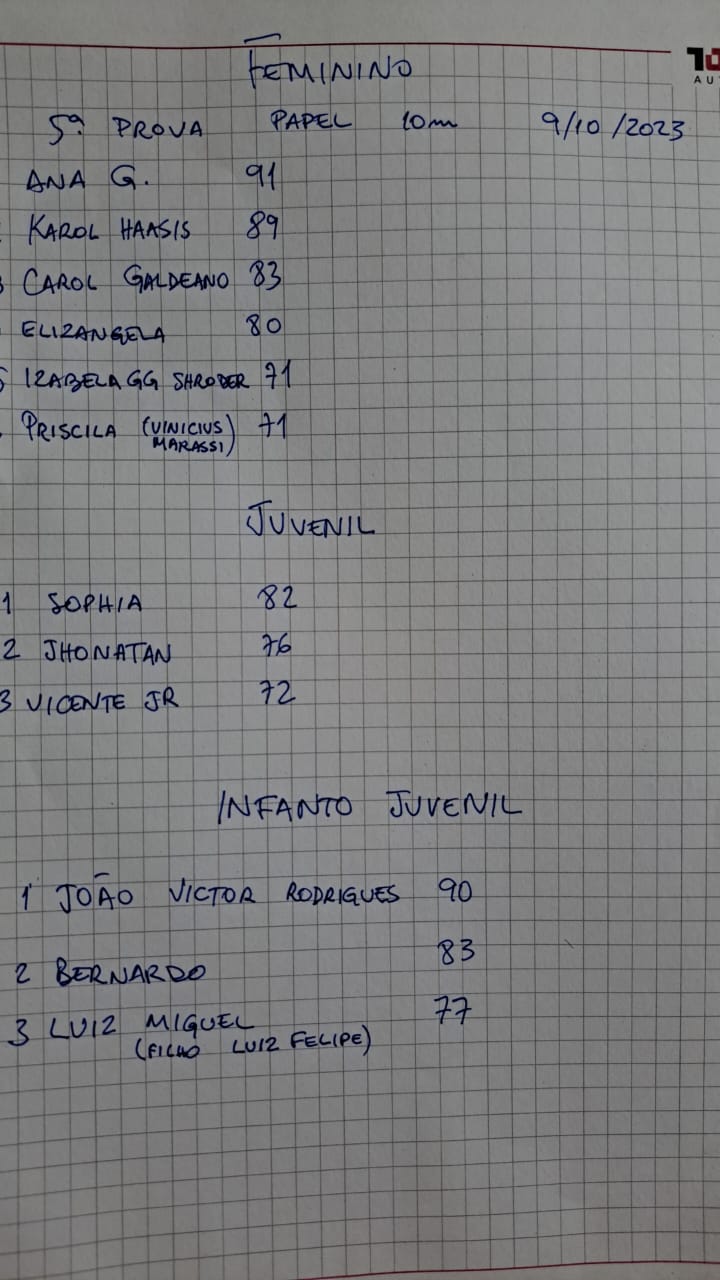 FEMININO
5ª PROVA PAPEL 10m 9/10/2023
ANA G. 91
KAROL HAASIS 89
CAROL GALDEANO 83
ELIZANGELA 80
5 IZABELA GG SHRODER 71
PRISCILA (VINICIUS MARASSI) 71
JUVENIL
1 SOPHIA 82
2 JHONATAN 76
3 VICENTE JR 72
INFANTO JUVENIL
1 JOÃO VICTOR RODRIGUES 90
2 BERNARDO 83
3 LUIZ MIGUEL 77
(FILHO LUIZ FELIPE)